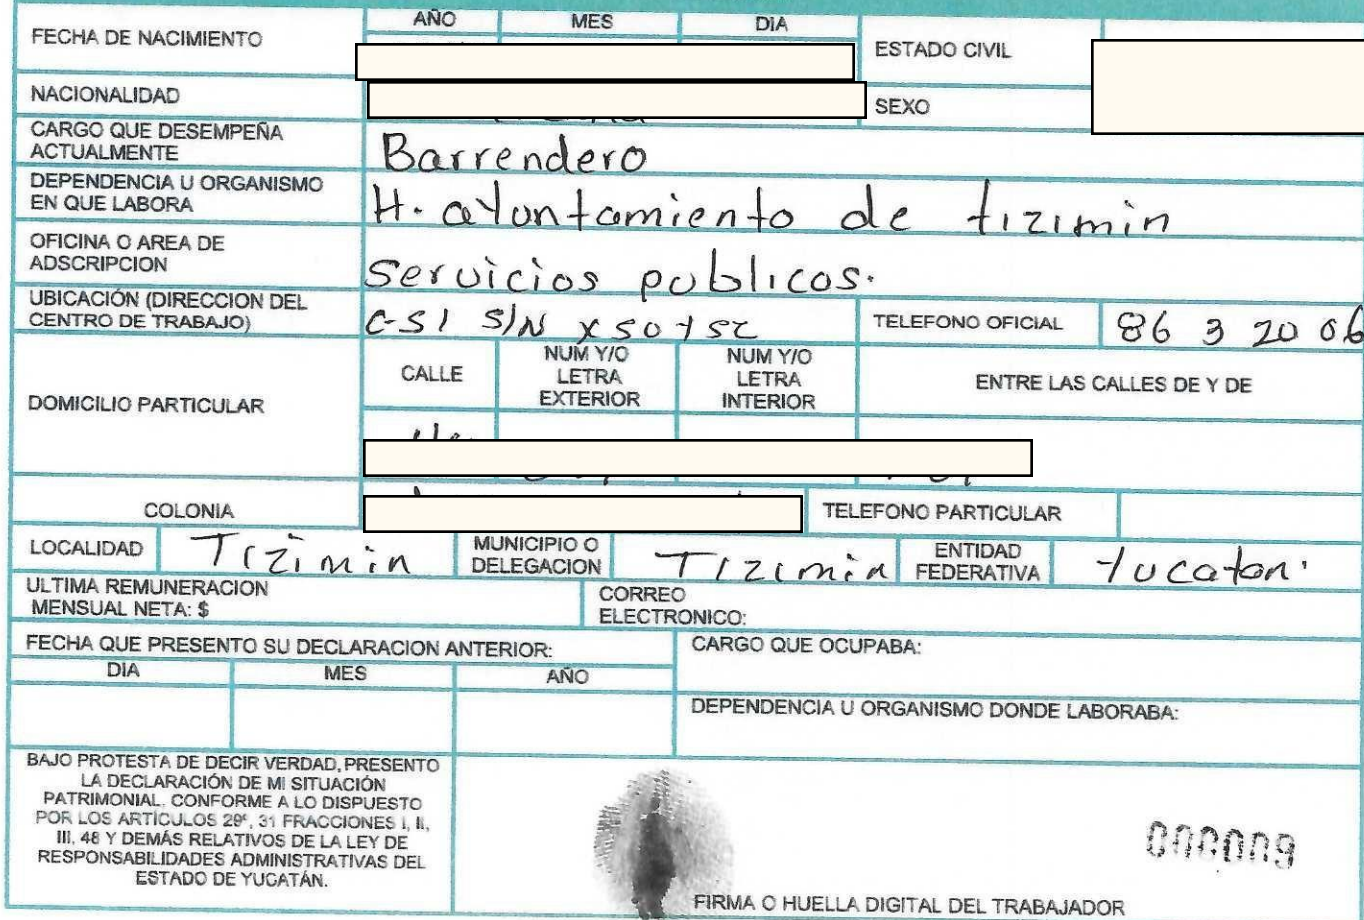 AÑO MES DIA
FECHA DE NACIMIENTO
ESTADO CIVIL
NACIONALIDAD
SEXO
CARGO QUE DESEMPEÑA
ACTUALMENTE
Barrendero
DEPENDENCIA U ORGANISMO
EN QUE LABORA
H. ayuntamiento de tizimin
OFICINA O AREA DE
ADSCRIPCION
Servicios publicos.
UBICACIÓN (DIRECCION DEL
CENTRO DE TRABAJO)
C-51 S/N x 50 y 52
TELEFONO OFICIAL
86 3 20 06
DOMICILIO PARTICULAR
CALLE
NUM Y/O
LETRA
EXTERIOR
NUM Y/O
LETRA
INTERIOR
ENTRE LAS CALLES DE Y DE
COLONIA
TELEFONO PARTICULAR
LOCALIDAD
Tizimin
MUNICIPIO O
DELEGACION
Tizimin
ENTIDAD
FEDERATIVA
Yucatan.
ULTIMA REMUNERACION
MENSUAL NETA: $
CORREO
ELECTRONICO:
FECHA QUE PRESENTO SU DECLARACION ANTERIOR:
CARGO QUE OCUPABA:
DIA MES AÑO
DEPENDENCIA U ORGANISMO DONDE LABORABA:
BAJO PROTESTA DE DECIR VERDAD, PRESENTO
LA DECLARACIÓN DE MI SITUACIÓN
PATRIMONIAL. CONFORME A LO DISPUESTO
POR LOS ARTÍCULOS 29º, 31 FRACCIONES I, II,
III, 48 Y DEMÁS RELATIVOS DE LA LEY DE
RESPONSABILIDADES ADMINISTRATIVAS DEL
ESTADO DE YUCATÁN.
000009
FIRMA O HUELLA DIGITAL DEL TRABAJADOR